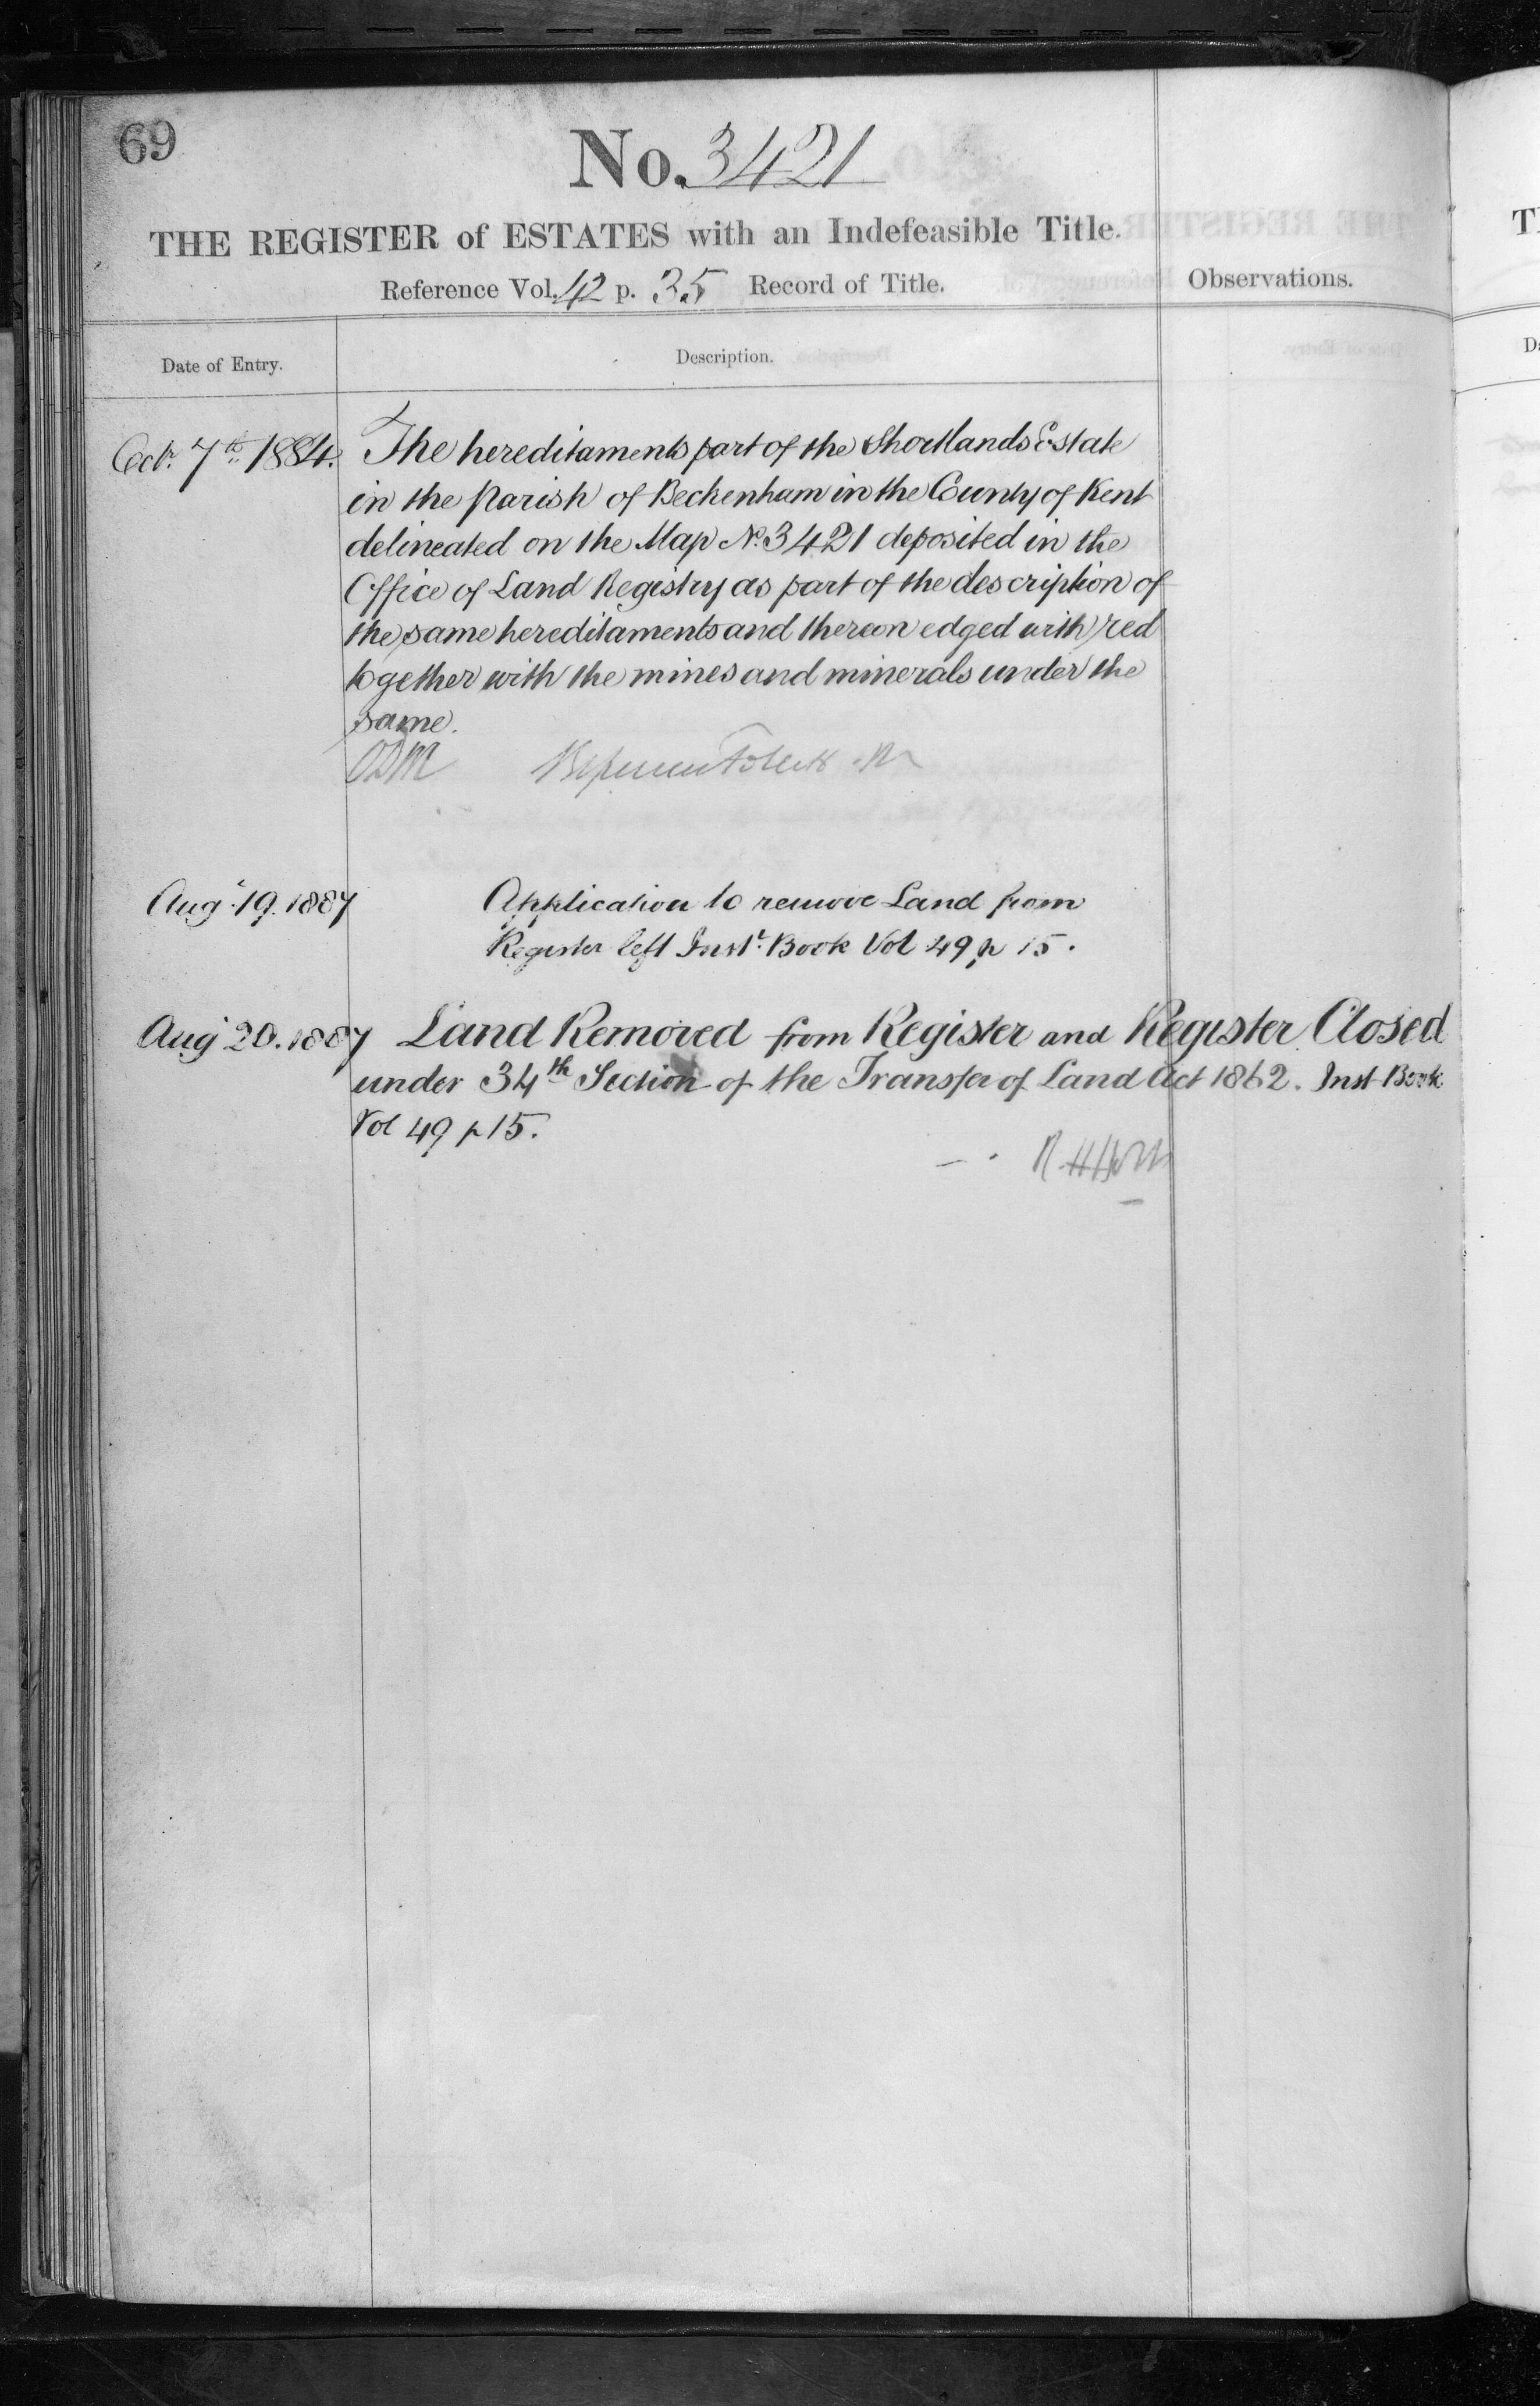 69
No. 3421
THE REGISTER of ESTATES with an Indefeasible Title.
Reference Vol. 42 p. 35 Record of Title.
Observations.
Date of Entry.
Description.
Octr. 7th 1884. The hereditaments part of the Shortlands Estate
in the Parish of Beckenham in the County of Kent
delineated on the Map No. 3421 deposited in the
Office of Land Registry as part of the description of
the same hereditaments and thereon edged with red
together with the mines and minerals under the
same.
Augt. 19. 1887 Application to remove Land from
Register left Inst. Book Vol 49 p 15.
Aug 20. 1887 Land Removed from Register and Register Closed
under 34th Section of the Transfer of Land Act 1862. Inst Book
Vol 49 p 15.